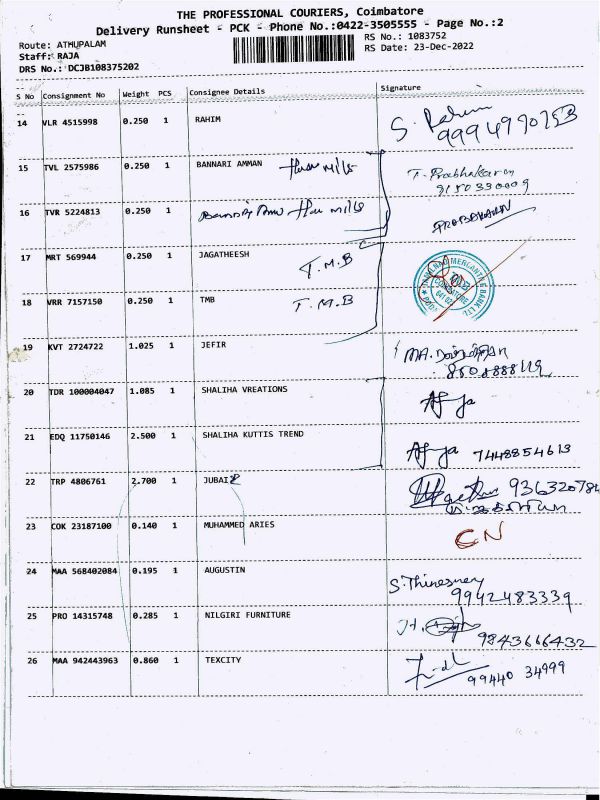 THE PROFESSIONAL COURIERS, Coimbatore
Delivery Runsheet - PCK - Phone No.:0422-3505555 - Page No.:2
Route: ATHUPALAM
RS No.: 1083752
Staff: RAJA
RS Date: 23-Dec-2022
DRS No.: DCJB108375202
S No Consignment No Weight PCS Consignee Details Signature
14 VLR 4515998 0.250 1 RAHIM S.
15 TVL 2575986 0.250 1 BANNARI AMMAN Mills T. Prabhakaran
9150330009
16 TVR 5224813 0.250 1 Mills PRABAKARAN
17 MRT 569944 0.250 1 JAGATHEESH T.M.B
18 VRR 7157150 0.250 1 TMB T.M.B
TAMILNAD MERCANTILE BANK LTD.
COIMBATORE
19 KVT 2724722 1.025 1 JEFIR MA.
20 TDR 100004047 1.085 1 SHALIHA VREATIONS
21 EDQ 11750146 2.500 1 SHALIHA KUTTIS TREND 7448854613
22 TRP 4806761 2.700 1 JUBAIR
23 COK 23187100 0.140 1 MUHAMMED ARIES CN
24 MAA 568402084 0.195 1 AUGUSTIN
9942483339
25 PRO 14315748 0.285 1 NILGIRI FURNITURE
9843666432
26 MAA 942443963 0.860 1 TEXCITY
99440 34999